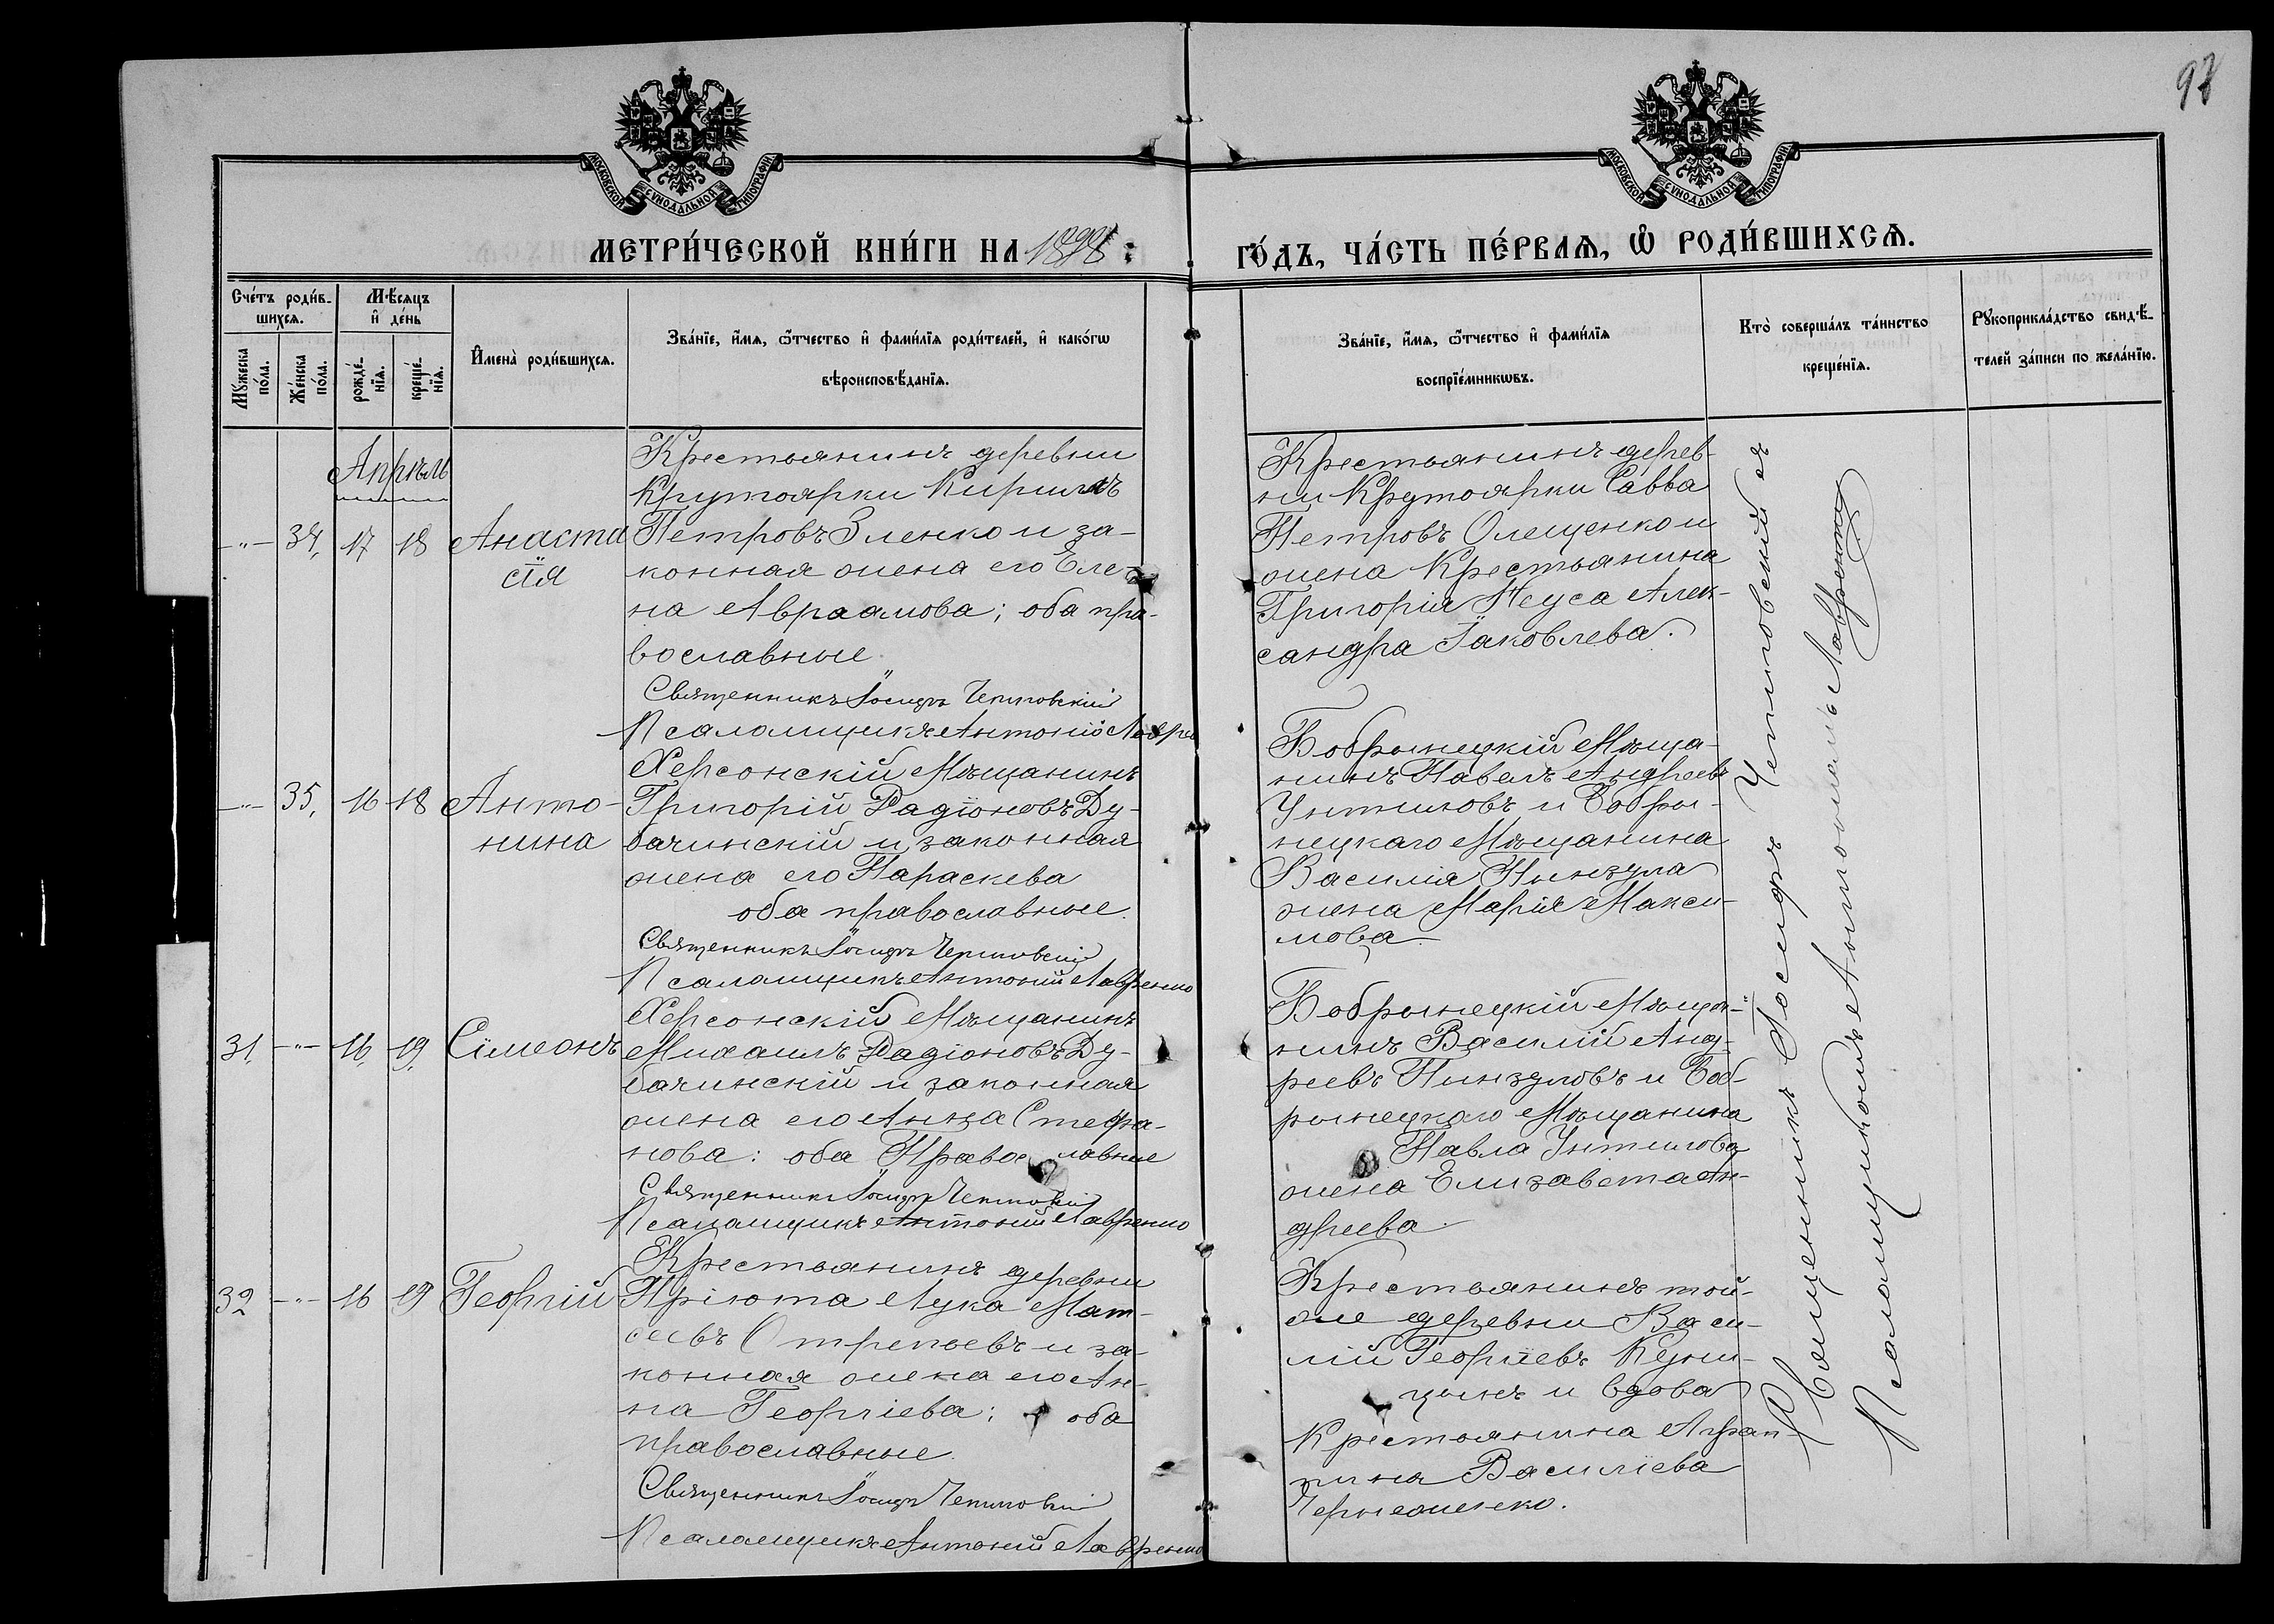 97
МОСКОВСКОЙ СѴНОДАЛЬНОЙ ТИПОГРАФІИ
МОСКОВСКОЙ СѴНОДАЛЬНОЙ ТИПОГРАФІИ
МЕТРИ́ЧЕСКОЙ КНИ́ГИ НА 1898:
ГО́ДЪ, ЧА́СТЬ ПЕ́РВАѦ, Ѡ҆ РОДИ́ВШИХСѦ.
Сче́тъ роди́в-
шихсѧ.
Мꙋ́жеска по́ла.
Же́нска по́ла.
Мѣ́сѧцъ
и҆ де́нь
рожде́-
нїѧ.
креще́-
нїѧ.
И҆мена̀ роди́вшихсѧ.
Зва́нїе, и҆́мѧ, ѻ҆́тчество и҆ фами́лїѧ роди́телей, и҆ како́гѡ
вѣроисповѣ́данїѧ.
Зва́нїе, и҆́мѧ, ѻ҆́тчество и҆ фами́лїѧ
воспрїе́мникѡвъ.
Кто̀ соверша́лъ та́инство
креще́нїѧ.
Рꙋкоприкла́дство свидѣ́-
телей за́писи по жела́нїю.
Апрѣль
-"- 34, 17 18 Анаста
сія
Крестьянинъ деревни
Крутоярки Кириллъ
Петровъ Зленко и за-
конная жена его Еле-
на Авраамова; оба пра-
вославные
Священникъ Іосифъ
Псаломщикъ Антоній
Крестьянинъ дерев-
ни Крутоярки Савва
Петровъ Олещенко и
жена Крестьянина
Григорія Неуса Алек-
сандра Іаковлева.
-"- 35, 16 18 Анто-
нина
Херсонскій Мѣщанинъ
Григорій Радіоновъ Ду-
бачинскій и законная
жена его Параскева
оба православные.
Священникъ Іосифъ
Псаломщикъ Антоній Лавренко
Бобринецкій Мѣща-
нинъ Павелъ Андреевъ
Унтиловъ и Бобри-
нецкаго Мѣщанина
Василія
жена Марія Макси-
мова.
31, -"- 16, 19, Сімеонъ
Херсонскій Мѣщанинъ
Михаилъ Радіоновъ Ду-
бачинскій и законная
жена его Анна Стефа-
нова: оба Православные
Священникъ Іосифъ
Псаломщикъ Антоній Лавренко
Бобринецкій Мѣща-
нинъ Василій Анд-
реевъ и Боб-
ринецкаго Мѣщанина
Павла Унтилова
жена Елизавета Ан-
дреева.
32 -"- 16 19 Георгій
Крестьянинъ деревни
Пріюта Лука Мат-
сеевъ Отрепьевъ и за-
конная жена его Ан-
на Георгіева; оба
православные.
Священникъ Іосифъ
Псаломщикъ Антоній Лавренко
Крестьянинъ той-
же деревни Васи-
лій Георгіевъ Куни-
цынъ и вдова
Крестьянина Агрип-
пина Василіева
Священникъ Іосифъ съ
Псаломщикомъ Антоніемъ Лавренко